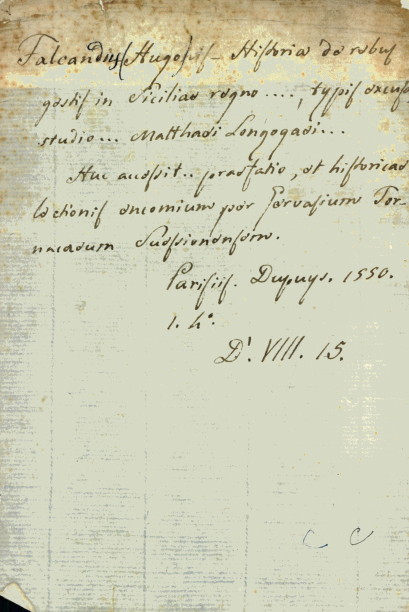 Falcandus (Hugo) sis - Historia de rebus
gestis in Siciliae regno ...., typis excusa
studio... Matthaei Longogaei...
Huc accessit.. praefatio, et historicae
lectionis encomium per Gervasium Tor-
nacaeum Suessionensem.
Parisiis. Dupuys. 1550.
1. 4°
D¹. VIII. 15.
C C